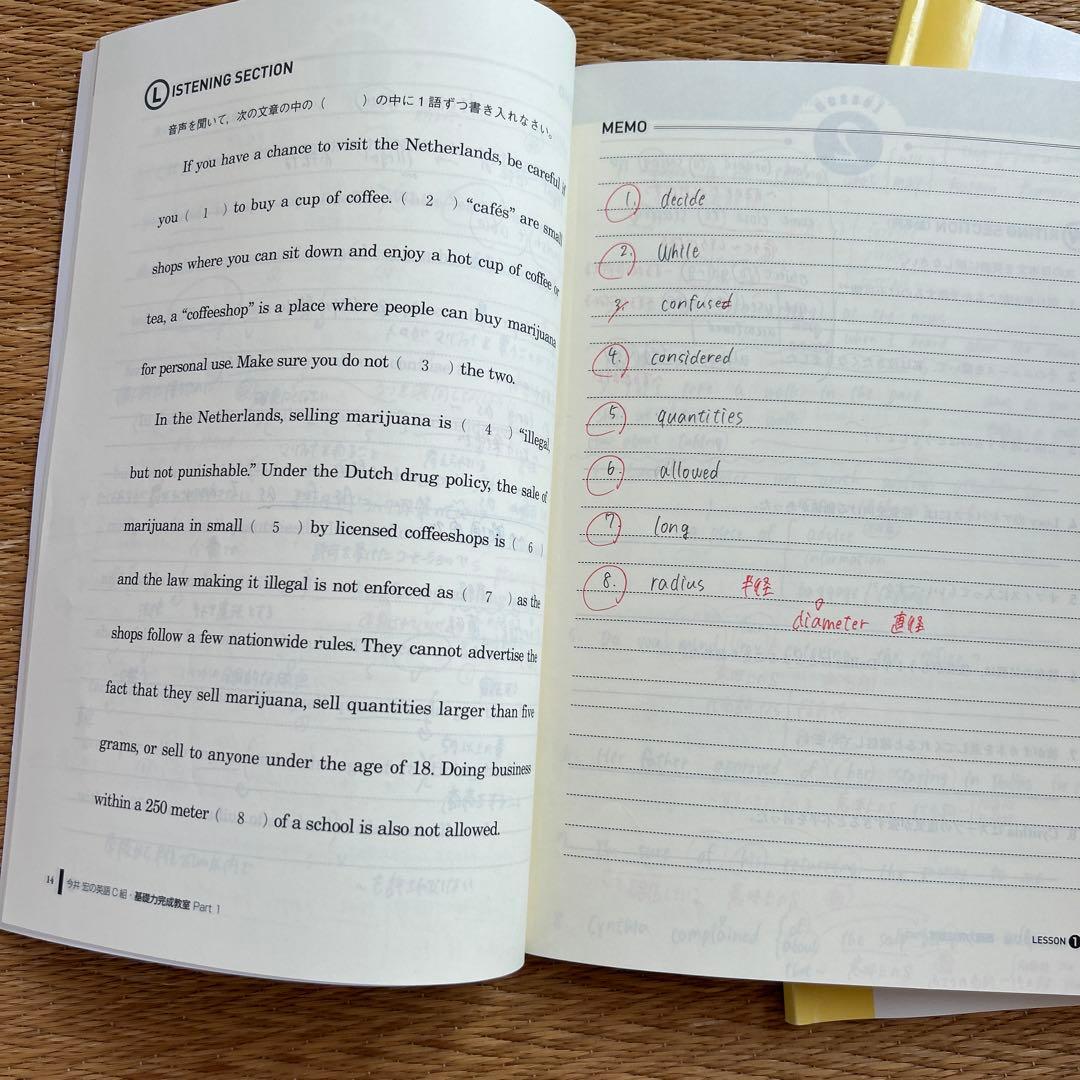 LISTENING SECTION
音声を聞いて，次の文章の中の（　　）の中に1語ずつ書き入れなさい。
If you have a chance to visit the Netherlands, be careful if
you ( 1 ) to buy a cup of coffee. ( 2 ) “cafés” are small
shops where you can sit down and enjoy a hot cup of coffee or
tea, a “coffeeshop” is a place where people can buy marijuana
for personal use. Make sure you do not ( 3 ) the two.
In the Netherlands, selling marijuana is ( 4 ) “illegal,
but not punishable.” Under the Dutch drug policy, the sale of
marijuana in small ( 5 ) by licensed coffeeshops is ( 6 )
and the law making it illegal is not enforced as ( 7 ) as the
shops follow a few nationwide rules. They cannot advertise the
fact that they sell marijuana, sell quantities larger than five
grams, or sell to anyone under the age of 18. Doing business
within a 250 meter ( 8 ) of a school is also not allowed.
14 今井宏の英語C組・基礎力完成教室 Part 1
MEMO
1. decide
2. While
3. confused
4. considered
5. quantities
6. allowed
7. long
8. radius 半径
diameter 直径
LESSON 1